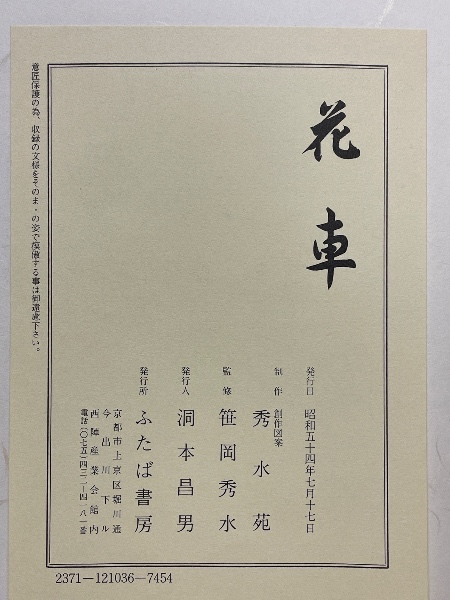 花車
発行日 昭和五十四年七月十七日
制作 創作図案 秀水苑
監修 笹岡秀水
発行人 洞本昌男
発行所 ふたば書房
京都市上京区堀川通
今出川下ル
西陣産業会館内
意匠保護の為、収録の文様をそのまゝの姿で模倣する事は御遠慮下さい。
2371—121036—7454